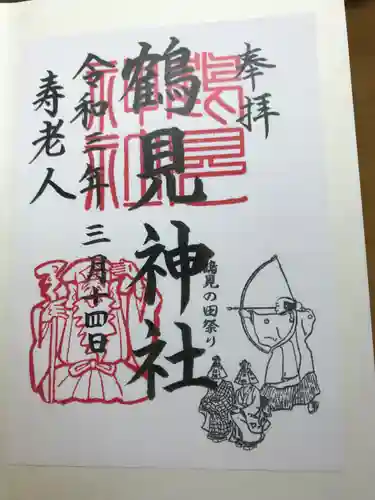 奉拝
鶴見神社
鶴見の田祭り
令和三年三月十四日
寿老人
鶴見
神社